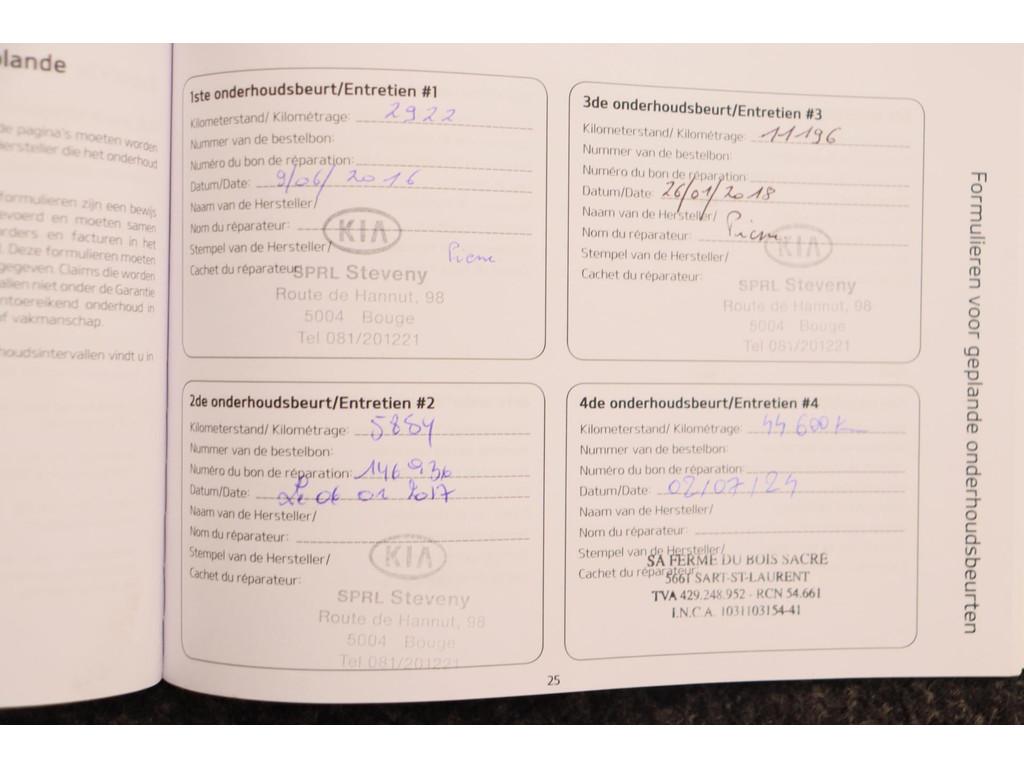 lande
de pagina's moeten worden
hersteller die het onderhoud
formulieren zijn een bewijs
evoerd en moeten samen
orders en facturen in het
. Deze formulieren moeten
gegeven. Claims die worden
allen niet onder de Garantie
ntoereikend onderhoud in
f vakmanschap.
houdsintervallen vindt u in
1ste onderhoudsbeurt/Entretien #1
Kilometerstand/ Kilométrage: 2922
Nummer van de bestelbon:
Numéro du bon de réparation:
Datum/Date: 9/06/2016
Naam van de Hersteller/
Nom du réparateur:
Stempel van de Hersteller/
Cachet du réparateur:
KIA
SPRL Steveny
Route de Hannut, 98
5004 Bouge
Tel 081/201221
2de onderhoudsbeurt/Entretien #2
Kilometerstand/ Kilométrage: 5884
Nummer van de bestelbon:
Numéro du bon de réparation: 146936
Datum/Date: Le 06 01 2017
Naam van de Hersteller/
Nom du réparateur:
Stempel van de Hersteller/
Cachet du réparateur:
KIA
SPRL Steveny
Route de Hannut, 98
5004 Bouge
Tel 081/201221
3de onderhoudsbeurt/Entretien #3
Kilometerstand/ Kilométrage: 11196
Nummer van de bestelbon:
Numéro du bon de réparation:
Datum/Date: 26/01/2018
Naam van de Hersteller/
Nom du réparateur:
Stempel van de Hersteller/
Cachet du réparateur:
KIA
SPRL Steveny
Route de Hannut, 98
5004 Bouge
Tel 081/201221
4de onderhoudsbeurt/Entretien #4
Kilometerstand/ Kilométrage: 44 600 K
Nummer van de bestelbon:
Numéro du bon de réparation:
Datum/Date: 02/07/24
Naam van de Hersteller/
Nom du réparateur:
Stempel van de Hersteller/
Cachet du réparateur:
SA FERME DU BOIS SACRÉ
5661 SART-ST-LAURENT
TVA 429.248.952 - RCN 54.661
I.N.C.A. 1031103154-41
Formulieren voor geplande onderhoudsbeurten
25